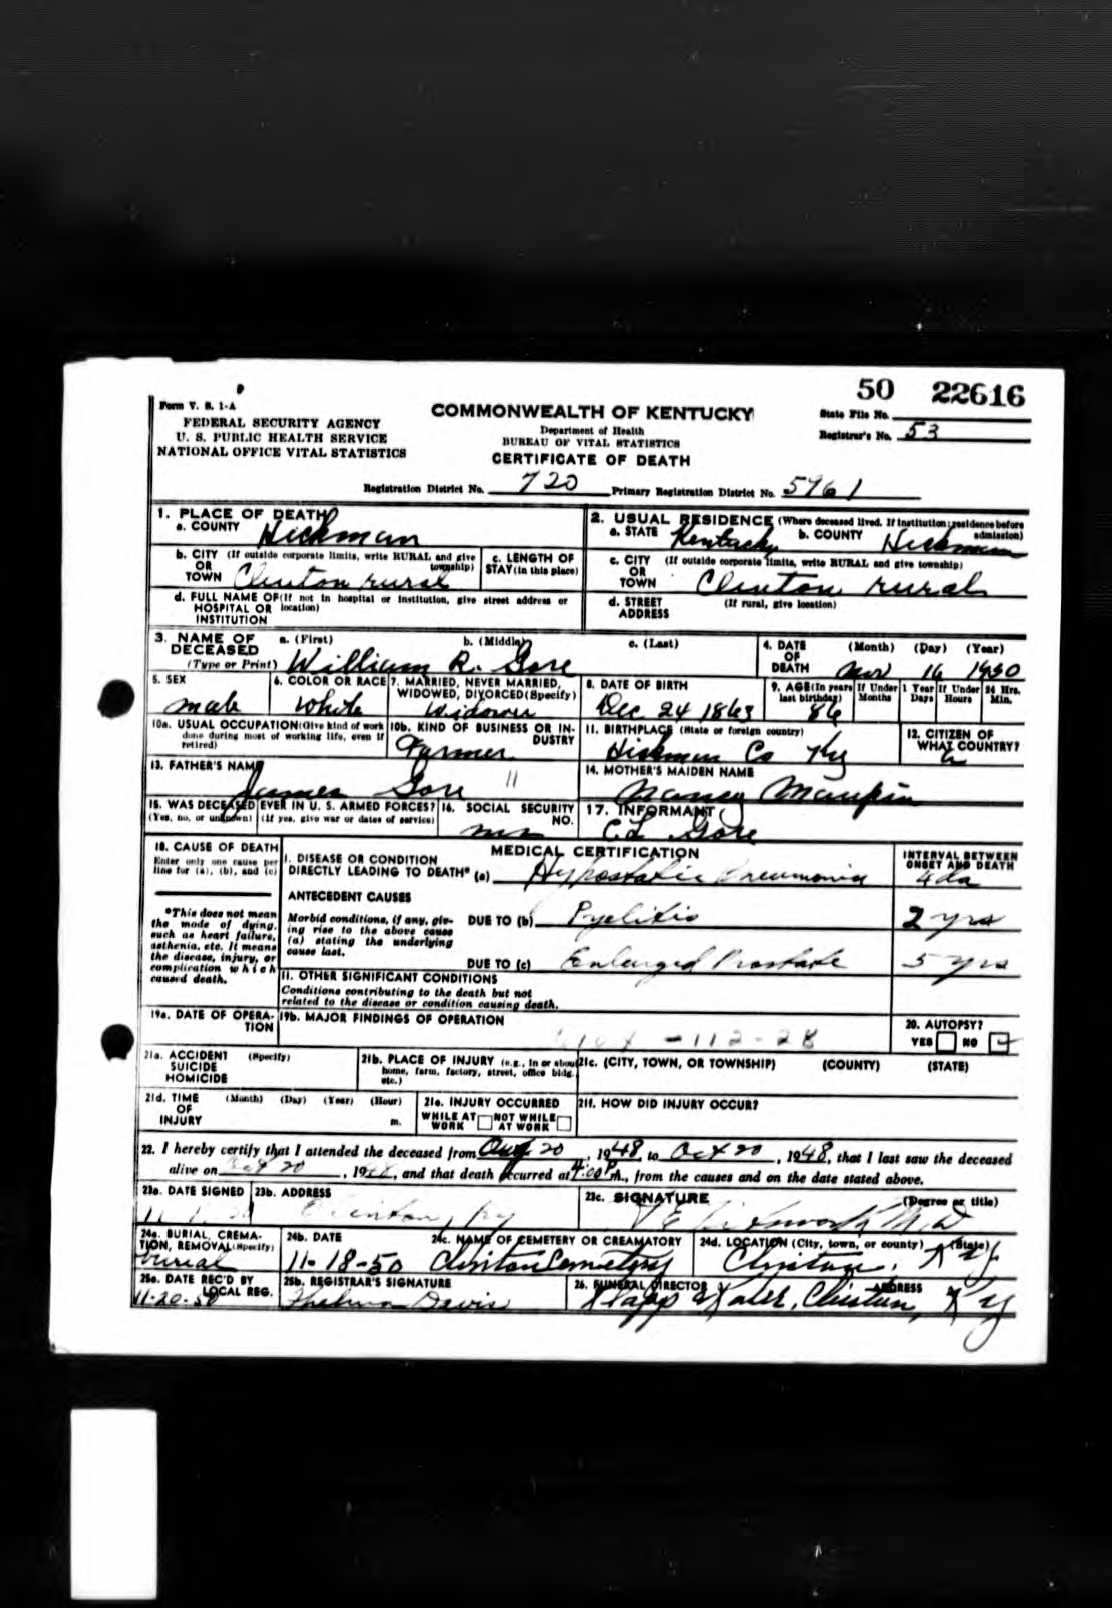 50 22616
Form V. S. 1-A
FEDERAL SECURITY AGENCY
U. S. PUBLIC HEALTH SERVICE
NATIONAL OFFICE VITAL STATISTICS
COMMONWEALTH OF KENTUCKY
Department of Health
BUREAU OF VITAL STATISTICS
CERTIFICATE OF DEATH
State File No.
Registrar's No. 53
Registration District No. 720 Primary Registration District No. 5961
1. PLACE OF DEATH
a. COUNTY Hickman
2. USUAL RESIDENCE (Where deceased lived. If institution: residence before admission)
a. STATE Kentucky b. COUNTY Hickman
b. CITY (If outside corporate limits, write RURAL and give township)
OR
TOWN Clinton rural
c. LENGTH OF STAY (in this place)
c. CITY (If outside corporate limits, write RURAL and give township)
OR
TOWN Clinton rural
d. FULL NAME OF (If not in hospital or institution, give street address or location)
HOSPITAL OR
INSTITUTION
d. STREET ADDRESS (If rural, give location)
3. NAME OF DECEASED (Type or Print) a. (First) b. (Middle) c. (Last)
William R. Gore
4. DATE OF DEATH (Month) (Day) (Year)
Nov 16 1950
5. SEX
male
6. COLOR OR RACE
White
7. MARRIED, NEVER MARRIED, WIDOWED, DIVORCED (Specify)
Widower
8. DATE OF BIRTH
Dec. 24 1863
9. AGE (In years last birthday) If Under 1 Year Months Days If Under 24 Hrs. Hours Min.
86
10a. USUAL OCCUPATION (Give kind of work done during most of working life, even if retired)
10b. KIND OF BUSINESS OR INDUSTRY
Farmer
11. BIRTHPLACE (State or foreign country)
Hickman Co Ky
12. CITIZEN OF WHAT COUNTRY?
13. FATHER'S NAME
James Gore
14. MOTHER'S MAIDEN NAME
Nancy Maupin
15. WAS DECEASED EVER IN U. S. ARMED FORCES?
(Yes, no, or unknown) (If yes, give war or dates of service)
16. SOCIAL SECURITY NO.
17. INFORMANT
C L Gore
18. CAUSE OF DEATH
Enter only one cause per line for (a), (b), and (c)
MEDICAL CERTIFICATION
INTERVAL BETWEEN ONSET AND DEATH
I. DISEASE OR CONDITION DIRECTLY LEADING TO DEATH* (a) Hypostatic Pneumonia 4 da
ANTECEDENT CAUSES
*This does not mean the mode of dying, such as heart failure, asthenia, etc. It means the disease, injury, or complication which caused death.
Morbid conditions, if any, giving rise to the above cause (a) stating the underlying cause last.
DUE TO (b) Pyelitis 2 yrs
DUE TO (c) Enlarged Prostate 5 yrs
II. OTHER SIGNIFICANT CONDITIONS
Conditions contributing to the death but not related to the disease or condition causing death.
19a. DATE OF OPERATION
19b. MAJOR FINDINGS OF OPERATION
20. AUTOPSY?
YES NO
21a. ACCIDENT SUICIDE HOMICIDE (Specify)
21b. PLACE OF INJURY (e.g., in or about home, farm, factory, street, office bldg., etc.)
21c. (CITY, TOWN, OR TOWNSHIP) (COUNTY) (STATE)
21d. TIME OF INJURY (Month) (Day) (Year) (Hour) m.
21e. INJURY OCCURRED
WHILE AT WORK NOT WHILE AT WORK
21f. HOW DID INJURY OCCUR?
22. I hereby certify that I attended the deceased from Aug 20, 1948, to Oct 20, 1948, that I last saw the deceased
alive on Oct 20, 1948, and that death occurred at 4:00 P m., from the causes and on the date stated above.
23a. DATE SIGNED
23b. ADDRESS
Clinton, Ky
23c. SIGNATURE (Degree or title)
M.D
24a. BURIAL, CREMATION, REMOVAL (Specify)
Burial
24b. DATE
11-18-50
24c. NAME OF CEMETERY OR CREAMATORY
Clinton Cemetery
24d. LOCATION (City, town, or county) (State)
Clinton, Ky.
25a. DATE REC'D BY LOCAL REG.
11-20-50
25b. REGISTRAR'S SIGNATURE
Thelma Davis
26. FUNERAL DIRECTOR ADDRESS
Clinton, Ky